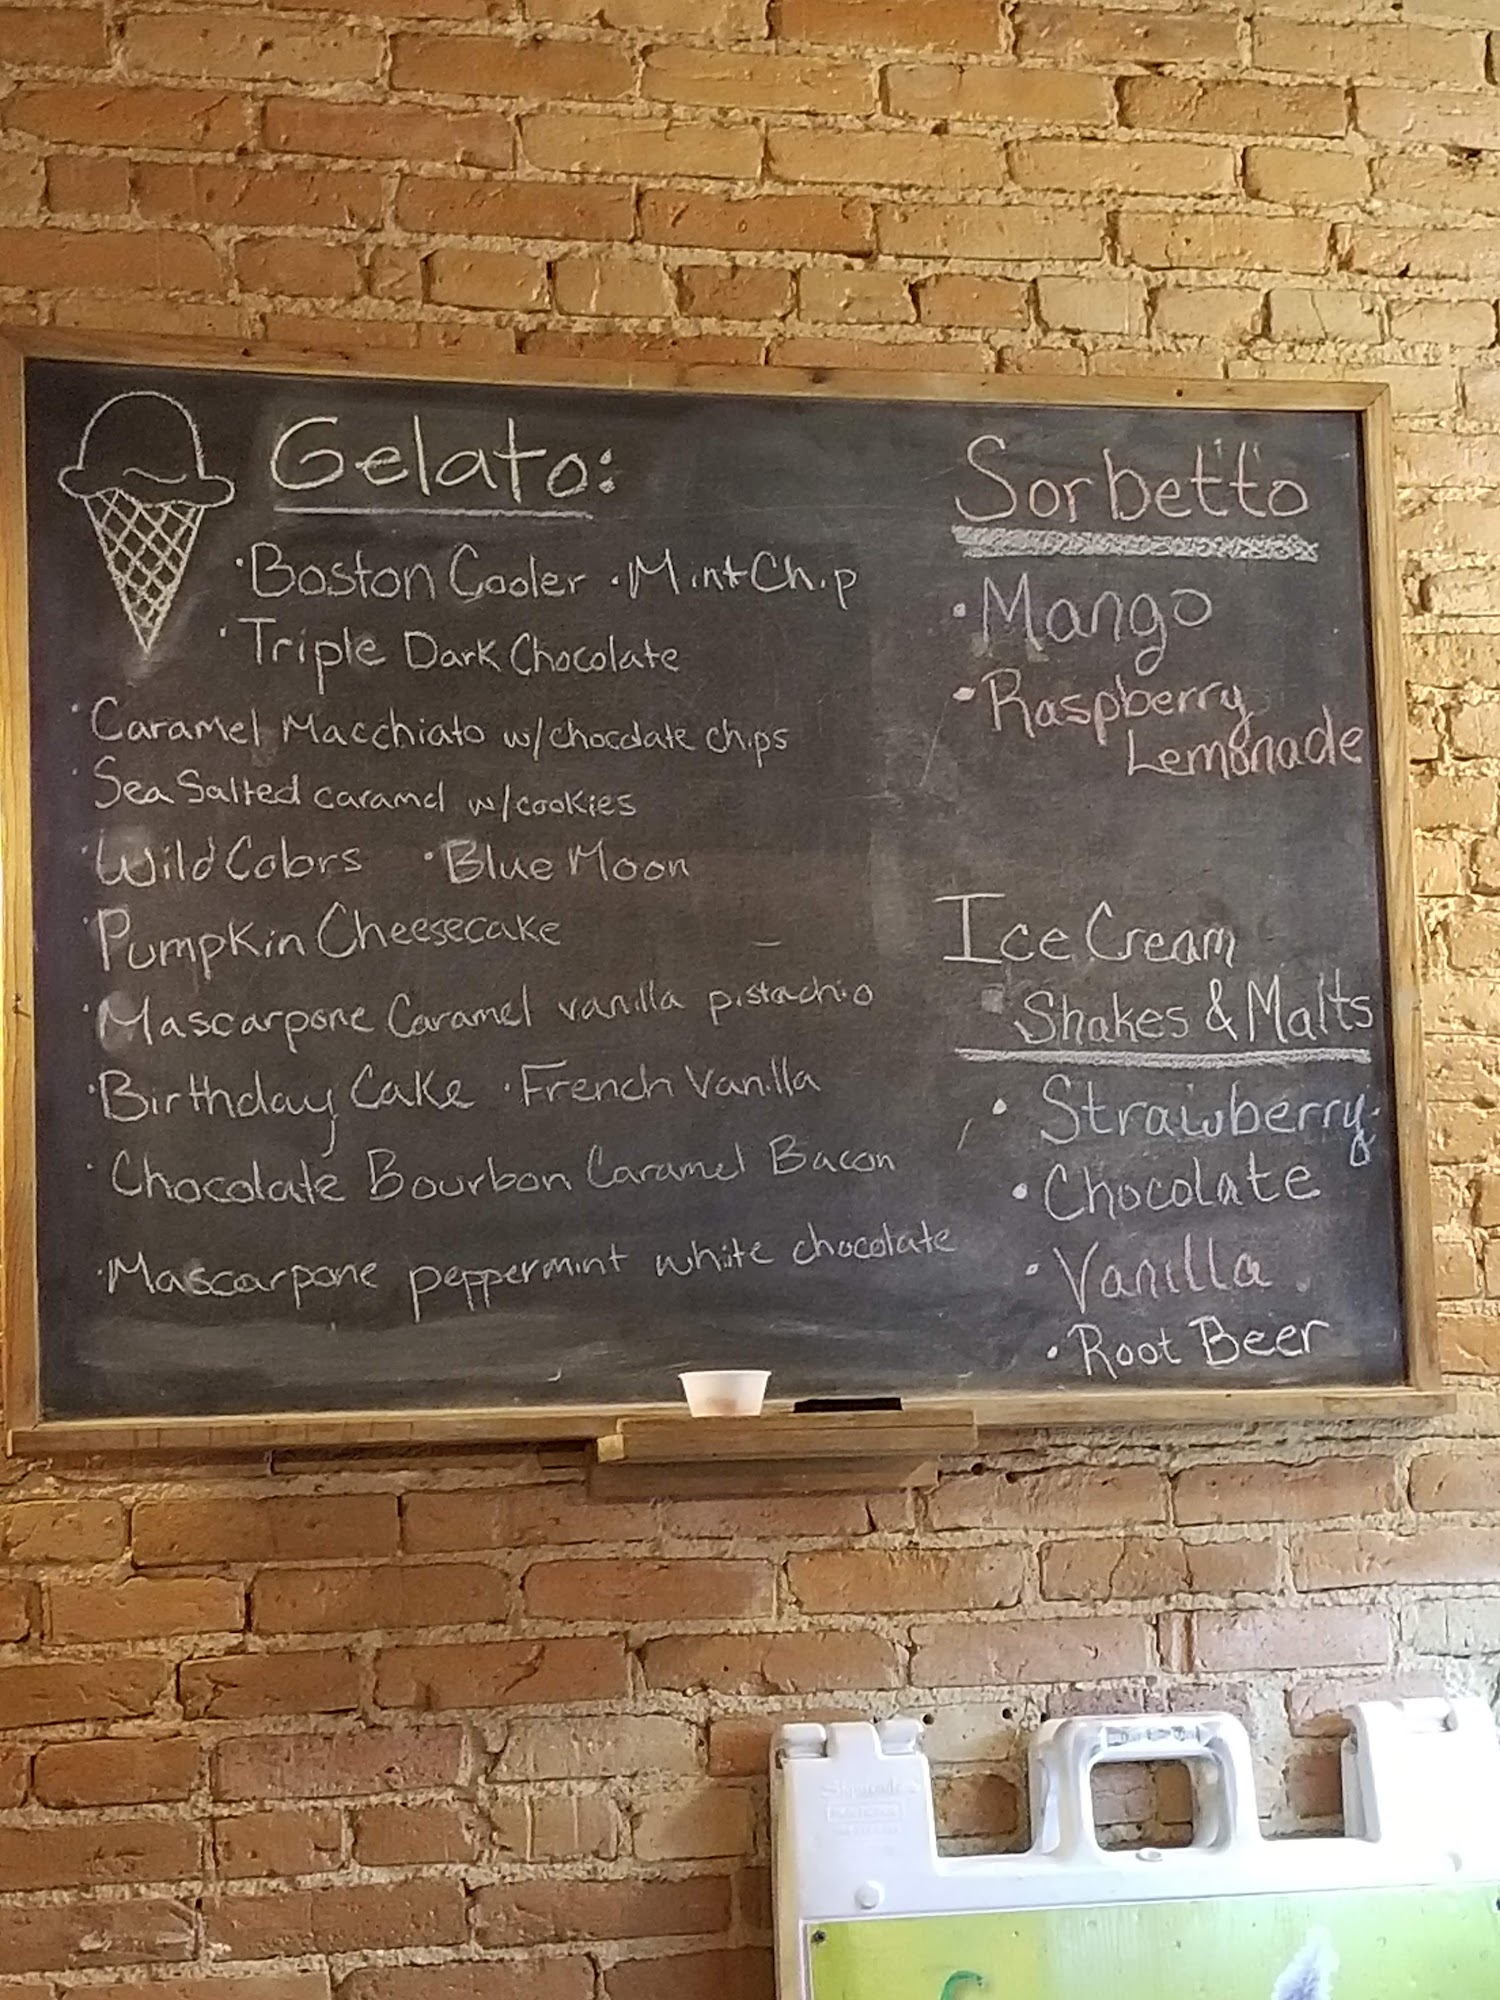 Gelato:
• Boston Cooler • Mint Chip
• Triple Dark Chocolate
• Caramel Macchiato w/chocolate chips
• Sea Salted caramel w/cookies
• Wild Colors • Blue Moon
• Pumpkin Cheesecake
• Mascarpone Caramel vanilla pistachio
• Birthday Cake • French Vanilla
• Chocolate Bourbon Caramel Bacon
• Mascarpone peppermint white chocolate
Sorbetto
• Mango
• Raspberry
Lemonade
Ice Cream
Shakes & Malts
• Strawberry
• Chocolate
• Vanilla
• Root Beer